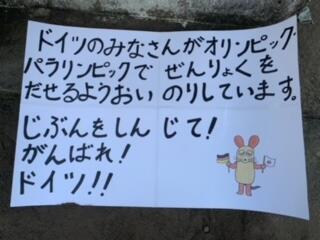 ドイツのみなさんがオリンピック・
パラリンピックで ぜんりょくを
だせるようおい のりしています。
じぶんをしん じて!
がんばれ!
ドイツ!!